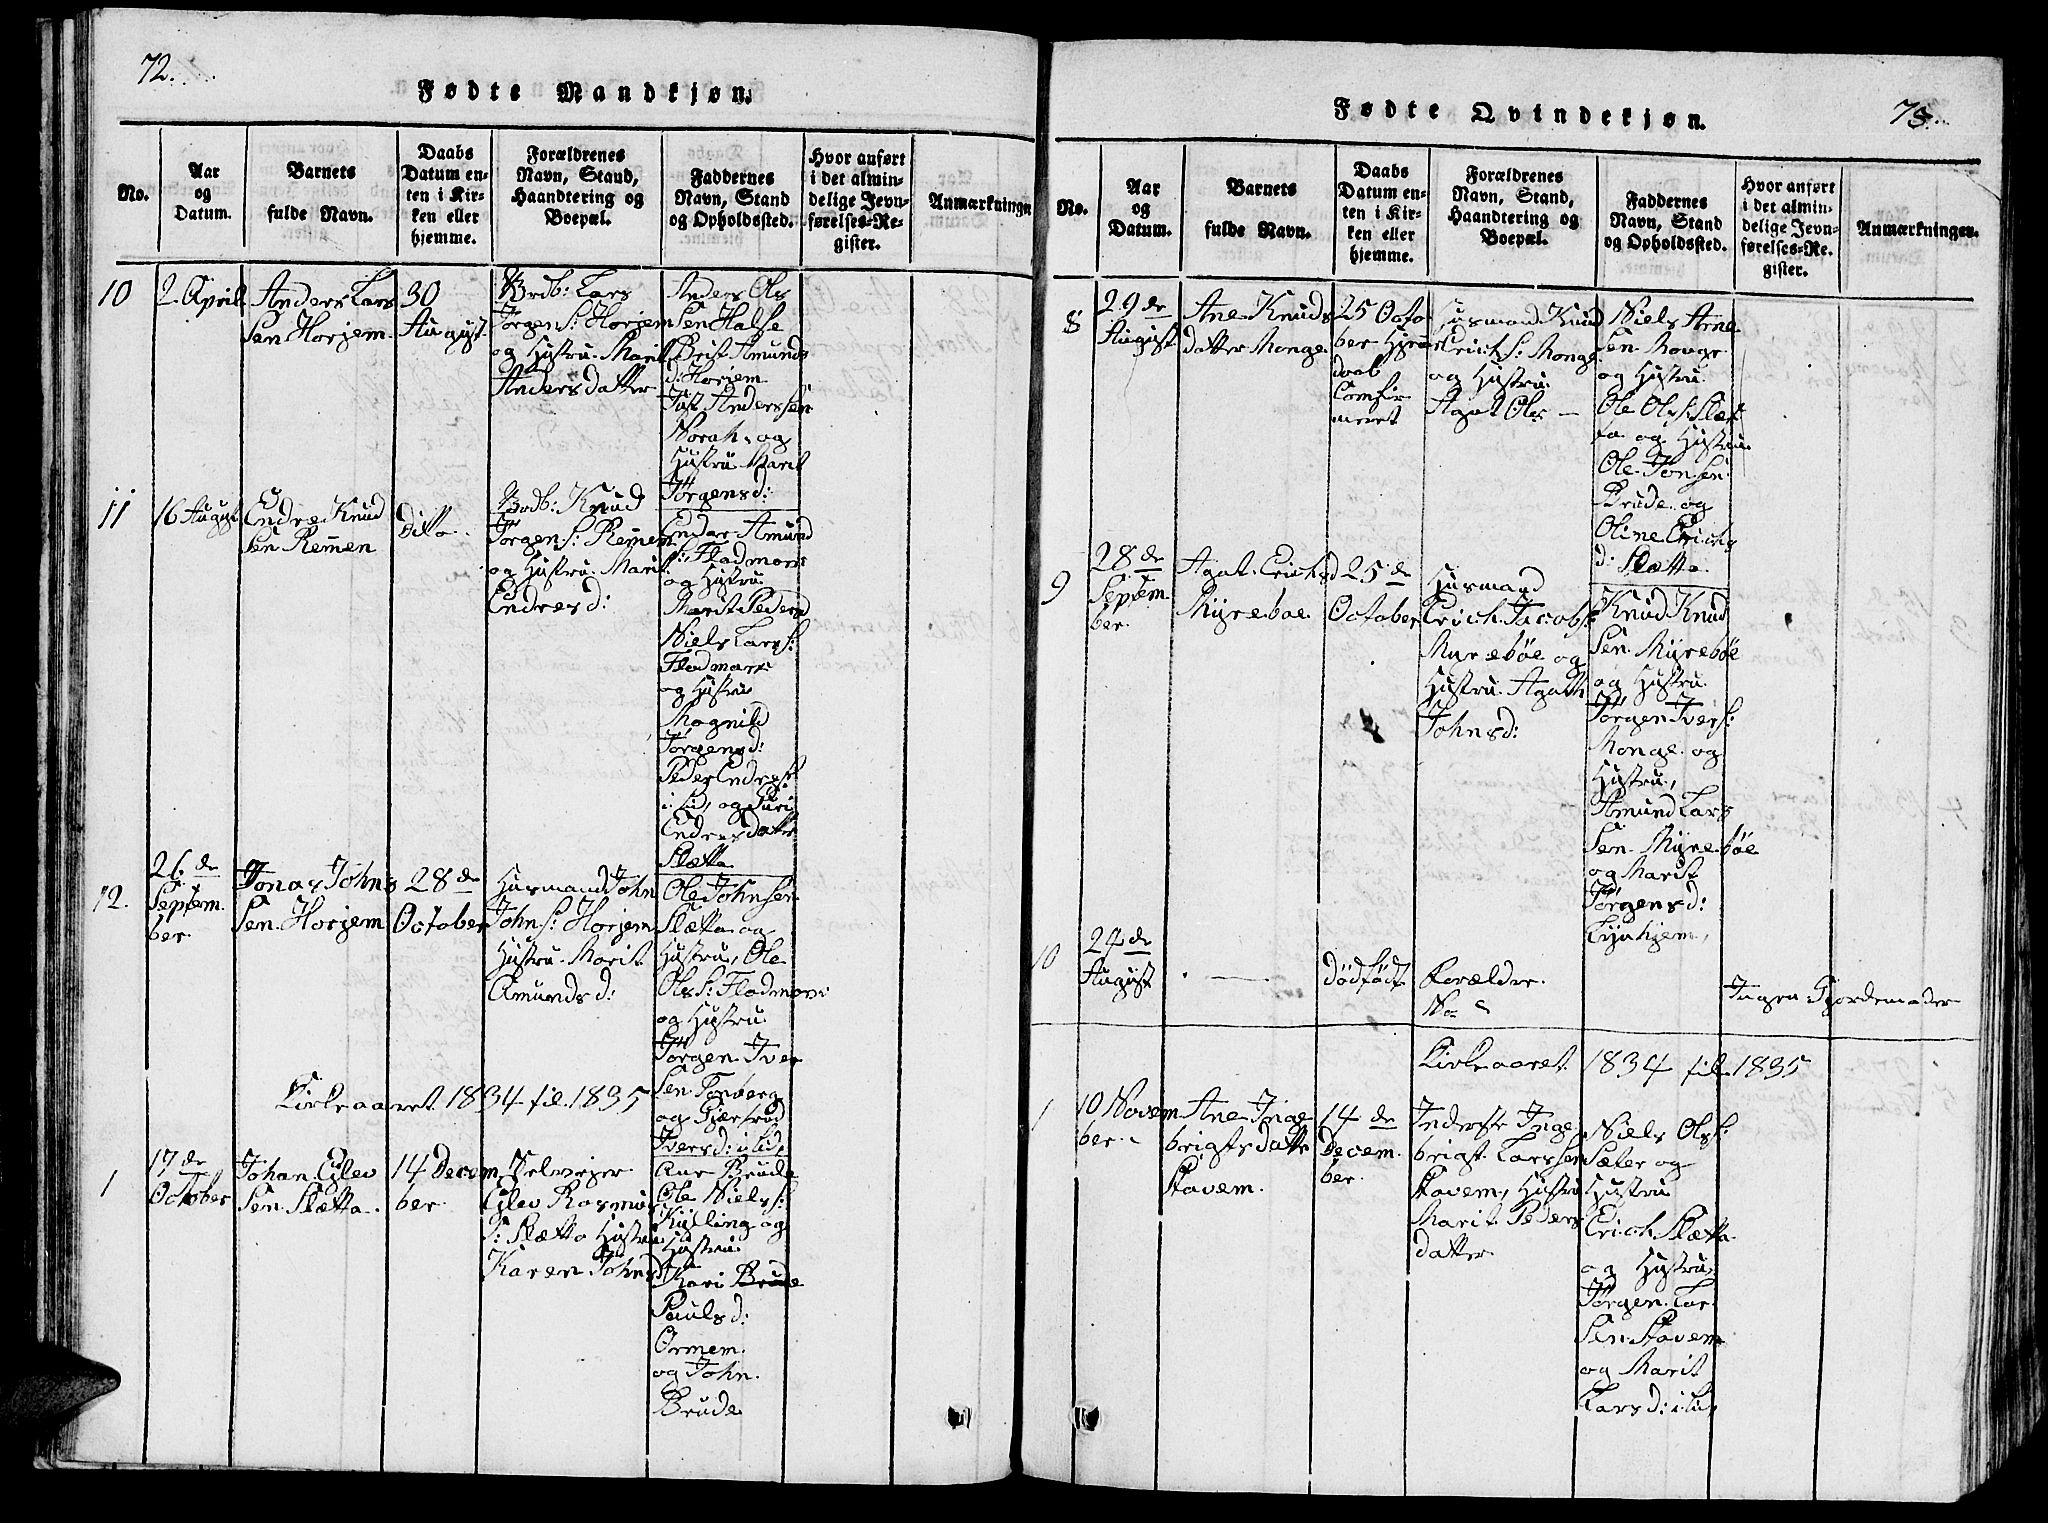 72.
Fødte Mandkjøn.
No.
Aar
og
Datum.
Barnets
fulde Navn.
Daabs
Datum en-
ten i Kir-
ken eller
hjemme.
Forældrenes
Navn, Stand,
Haandtering og
Boepæl.
Faddernes
Navn, Stand
og Opholdssted.
Hvor anført
i det almin-
delige Jevn-
førelses-Re-
gister.
Anmærkninger
10
2 April
Anders Lars
Sen Horjem.
30
August
Brdb: Lars
Jørgen S: Horjem
og Hustru Marit
Andersdatter
Anders Ols
Sen Halse
Brit Amunds
d: Horjem
Anderssen
Norah, og
Hustru Marit
Jørgensd:
11
16 August
Endre Knud
Sen Remen
Ditto.
Brdb: Knud
Jørgen S: Remem
og Hustru Marit
Endresd:
Endar Amund
S: Fladmark
og Hustru
Marit Pedersd
Niels Lars S:
Fladmark
og Hustru
Magnild
Jørgensd:
Peder Endre S:
i Lid, og Guri
Endresdatter
Slætta
12.
26 de
Septem
ber.
Jonas Johns
Sen Horjem
28 de
October
Husmand John
John S: Horjem
Hustru Marit
Amundsd:
Ole Johnsen
Slætta og
Hustru, Ole
Ols S: Fladmark
og Hustru
Jørgen Iver
Sen Tonberg
og Gjærtrud
Iversd: i Lid,
Kirkeaaret 1834 til 1835
1
17 de
October
Johan Elev
Sen Slætta.
14 Decem
ber
Selveier
Elev Rasmus
S: Slætta Hustru
Karen Johnsd
Ane Brude
Ole Niels S:
Kylling og
Hustru
Kari Brude
Paulsd:
Ormem.
og John
Brude
73.
Fødte Qvindekjøn.
No.
Aar
og
Datum.
Barnets
fulde Navn.
Daabs
Datum en-
ten i Kir-
ken eller
hjemme.
Forældrenes
Navn, Stand,
Haandtering og
Boepæl.
Faddernes
Navn, Stand
og Opholdssted.
Hvor anført
i det almin-
delige Jevn-
førelses-Re-
gister.
Anmærkninger.
8
29 de
August
Ane Knuds
datter Monge
25 Octo
ber Hjem
daab
Comfir
meret
Husmand Knud
Erich S: Monge
og Hustru
Agat Ols —
Niels Arne
Sen Monge
og Hustru
Ole Ols S: Slæt
ta og Hustru
Ole Jonsen
Brude og
Oline Erichs
d: Slætta
9
28 de
Septem
ber.
Agat Erichsd
Myreboe
25 de
October
Husmand
Erich Jacob S:
Myrebøe og
Hustru Agath
Johnsd:
Knud Knud
Sen Myrebøe
og Hustru
Jørgen Iver S:
Monge og
Hustru,
Amund Lars
Sen Myrebøe
og Marit
Jørgensd:
Lynhjem,
10
24 de
August
—
Dödfödt
Forældre
No
Ingen Gjordemoder
Kirkeaaret 1834 til 1835
1
10 Novem
ber.
Ane Inge
brigtsdatter
Stavem.
14 de
Decem
ber.
Inderste Inge
brigt Larssen
Stavem, Hustru
Marit Peders
datter
Niels Ols S:
Sæter og
Hustru
Erich Slætta
og Hustru,
Jørgen Lar
Sen Stavem
og Marit
Larsd: i Lid,